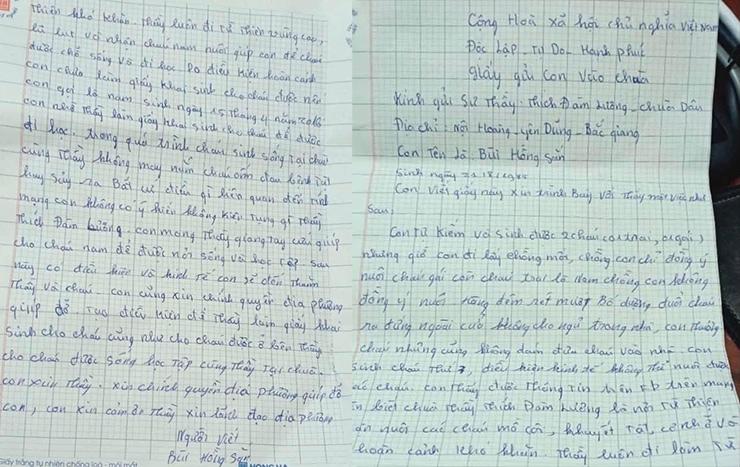 Cộng Hoà xã hội chủ nghĩa việt nam
Độc Lập - Tự Do - Hạnh phúc
giấy gửi con vào chùa
Kính gửi Sư Thầy: Thích Đàm Lương - chùa Dân
Địa chỉ: Nội Hoàng - yên Dũng - Bắc giang
Con Tên là: Bùi Hồng Sản
Sinh ngày
Con viết giấy này xin trình Bày với Thầy một việc như
Sau:
Con tu kiếm và sinh được 2 cháu (01 trai, 01 gái)
nhưng giờ con đi lấy chồng mới, chồng con chỉ đồng ý
nuôi cháu gái còn cháu trai là Nam chồng con không
đồng ý nuôi hàng đêm nét mượt Bố dượng đuổi cháu
ra đứng ngoài cửa không cho ngủ trong nhà, con thương
cháu nhưng cũng không dám đưa cháu vào nhà. Con
sinh cháu thứ 3, điều kiện kinh tế không thể nuôi được
các cháu. con thấy được thông tin trên FB trên mạng
con biết chùa Thầy Thích Đàm Lương là nơi Từ Thiện
ăn nuôi các cháu mồ côi, khuyết tật, cơ nhỡ và
hoàn cảnh khó khăn. Thầy luôn đi làm Từ
Thiện khó khăn. Thầy luôn đi từ Thiện vùng cao,
lũ lụt và nhận cháu nam nuôi giúp con để cháu
được chỗ sống và đi học. Do điều kiện hoàn cảnh
con chưa làm giấy khai sinh cho cháu được nên
con gọi là nam sinh ngày 15 tháng 4 năm
con nhờ Thầy làm giấy khai sinh cho cháu để được
đi học. trong quá trình cháu sinh sống tại chùa
cùng Thầy không may nếu cháu ốm đau bệnh tật
hay sảy ra Bất cứ điều gì liên quan đến tính
mạng con không có ý kiến không kiện tụng gì Thầy
Thích Đàm Lương. con mong Thầy giang tay cứu giúp
cho cháu nam để được nơi sống và học tập sau
này có điều kiện về kinh tế con sẽ đến thăm
Thầy và cháu. con cũng xin chính quyền địa phương
giúp đỡ. Tạo điều kiện để Thầy làm giấy khai
sinh cho cháu cũng như cho cháu được ở bên Thầy
cho cháu được sống học tập cùng Thầy tại chùa.
con xin Thầy, xin chính quyền địa phương giúp đỡ
con, con xin cảm ơn Thầy xin lãnh đạo địa phương
Người viết
Bùi Hồng Sản
Giấy trắng tự nhiên chống loá - mỏi mắt